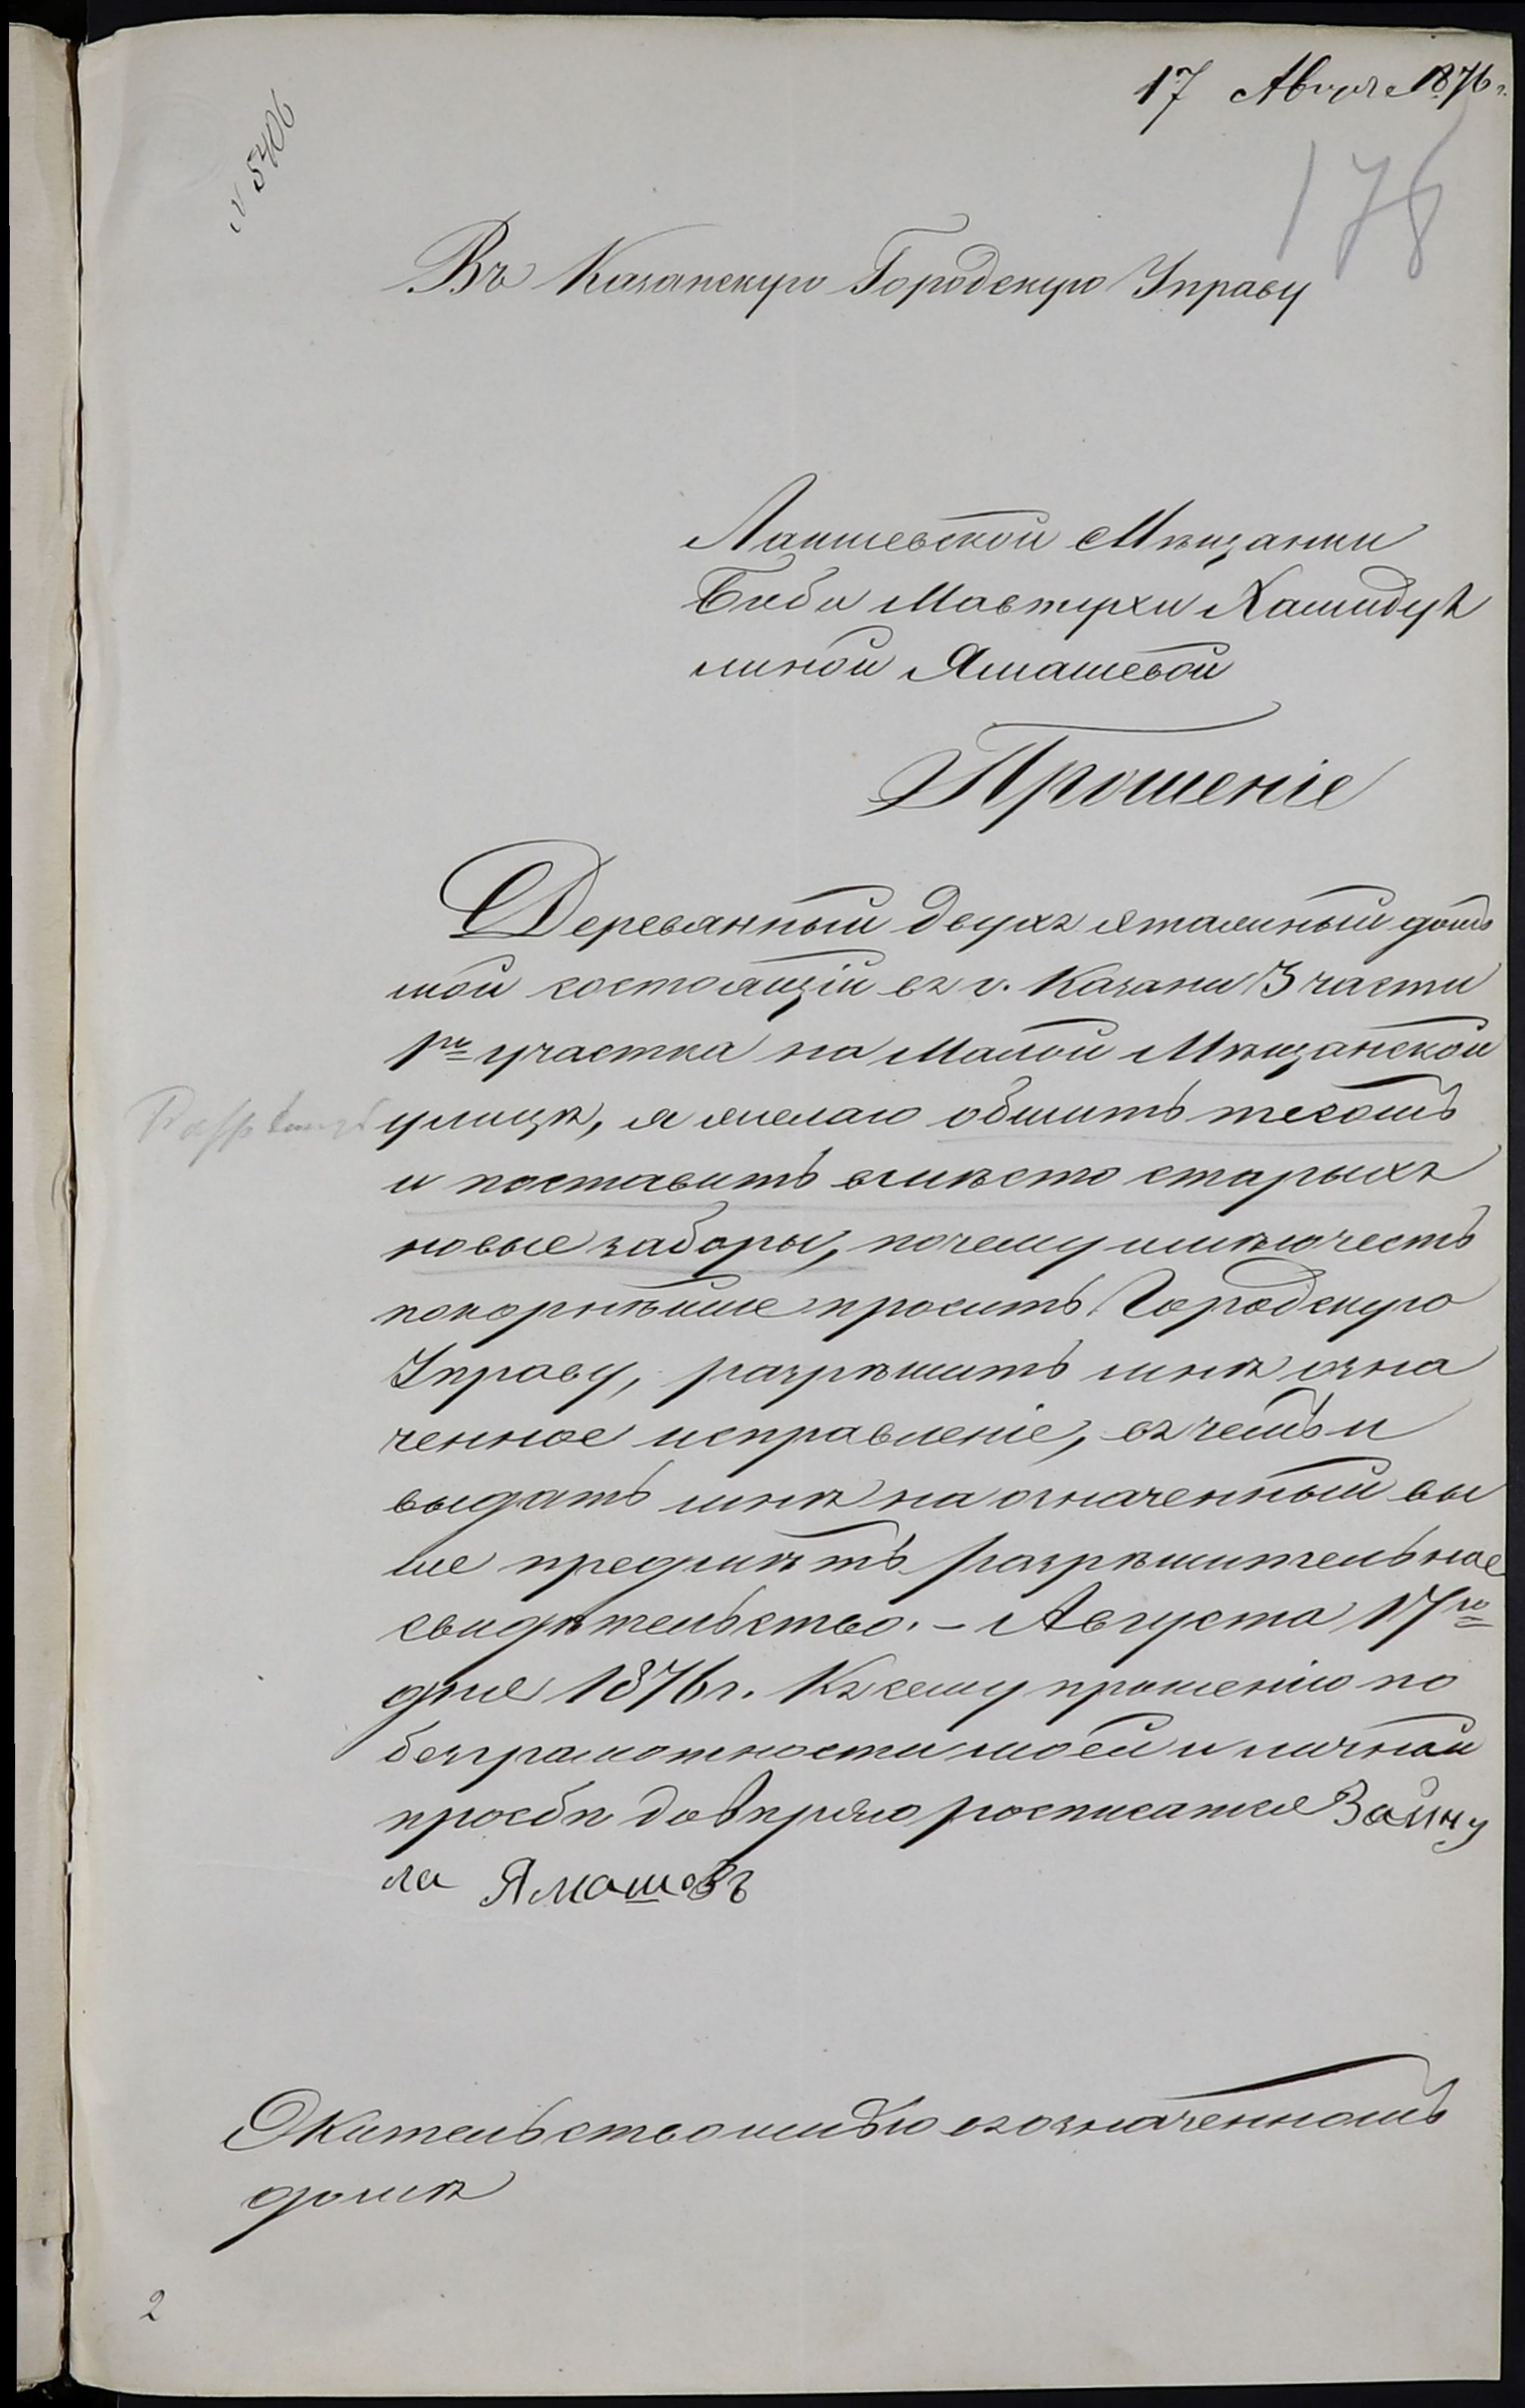 17 Августа 1876 г.
№ 5406
178
Въ Казанскую Городскую Управу
Лаишевской Мѣщанки
Биби Мавтухи Хамидул
линой Ямашевой
Прошеніе
Деревянный двухъ этажный домъ
мой состоящій въ г. Казани 3 части
1го участка на Малой Мѣщанской
улицѣ, я желаю обшить тесомъ
и поставить вмѣсто старыхъ
новые заборы, почему имѣю честь
покорнѣйше просить Городскую
Управу, разрѣшить мнѣ озна
ченное исправленіе, въ чемъ и
выдать мнѣ на означенный вы
ше предмѣтъ разрѣшительное
свидѣтельство. – Августа 17го
дня 1876 г. Къ сему прошенію по
безграмотности моей и личной
прозбѣ довѣряю росписатся Зайну
ла Ямашевъ
Жительство имѣю въ означенномъ
домѣ
2